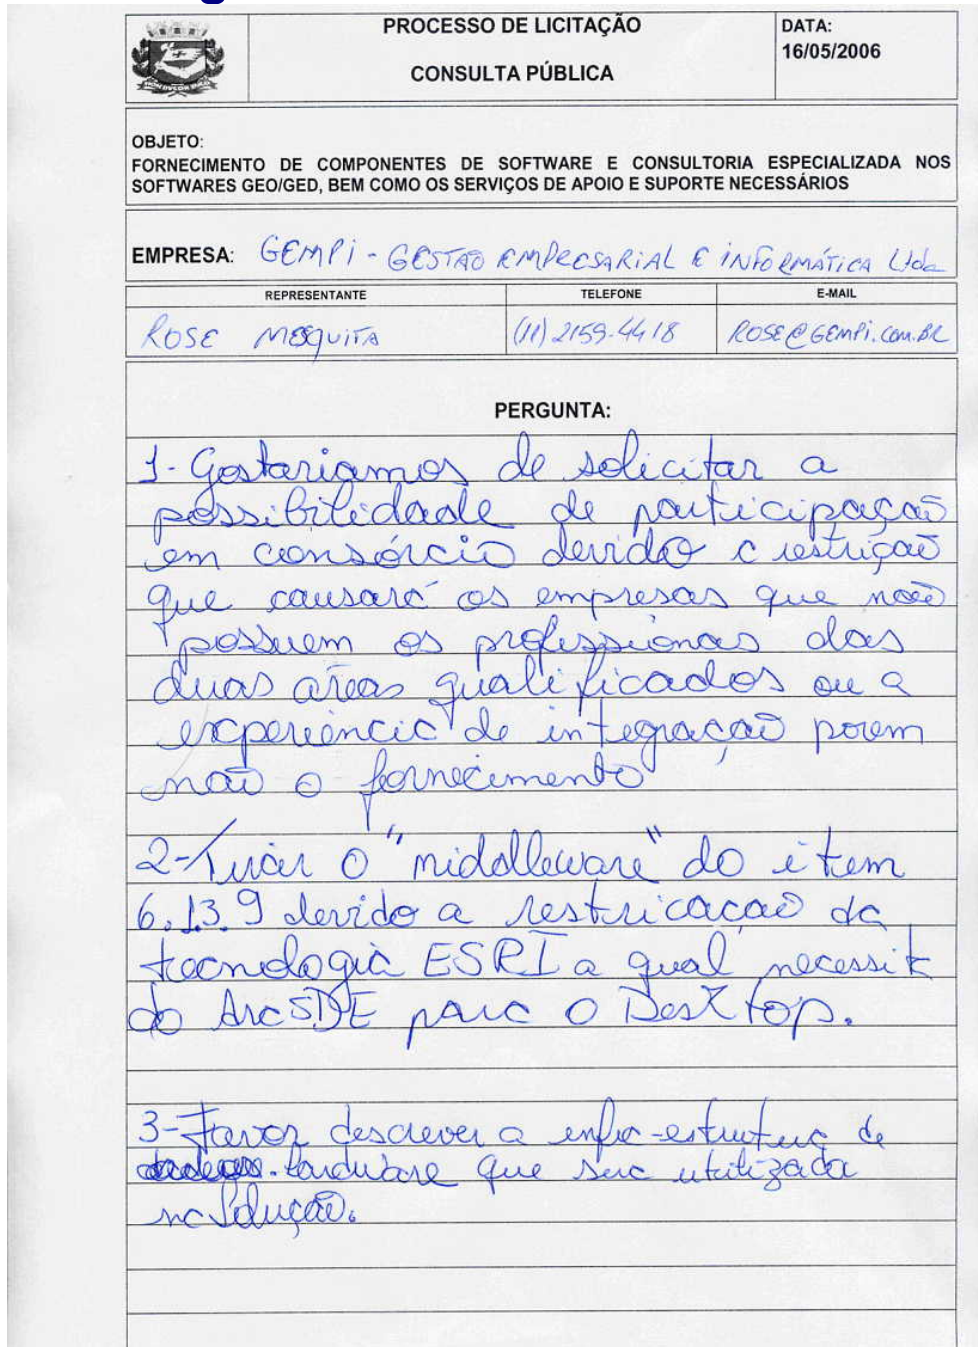 PROCESSO DE LICITAÇÃO
CONSULTA PÚBLICA
DATA:
16/05/2006
OBJETO:
FORNECIMENTO DE COMPONENTES DE SOFTWARE E CONSULTORIA ESPECIALIZADA NOS
SOFTWARES GEO/GED, BEM COMO OS SERVIÇOS DE APOIO E SUPORTE NECESSÁRIOS
EMPRESA: GEMPI - GESTÃO EMPRESARIAL E INFORMÁTICA Ltda
REPRESENTANTE TELEFONE E-MAIL
ROSE MESQUITA (11) 2159-4418 ROSE@GEMPI.COM.BR
PERGUNTA:
1- Gostariamos de solicitar a
possibilidade de participação
em consórcio devido a restrição
que causará as empresas que não
possuem os profissionais das
duas áreas qualificados ou a
experiência de integração porem
não o fornecimento
2- Tirar o "middleware" do item
6.13.9 devido a restricação da
tecnologia ESRI a qual necessita
do ArcSDE para o Desktop.
3- Favor descrever a infra-estrutura de
hardware que será utilizada
na Solução.